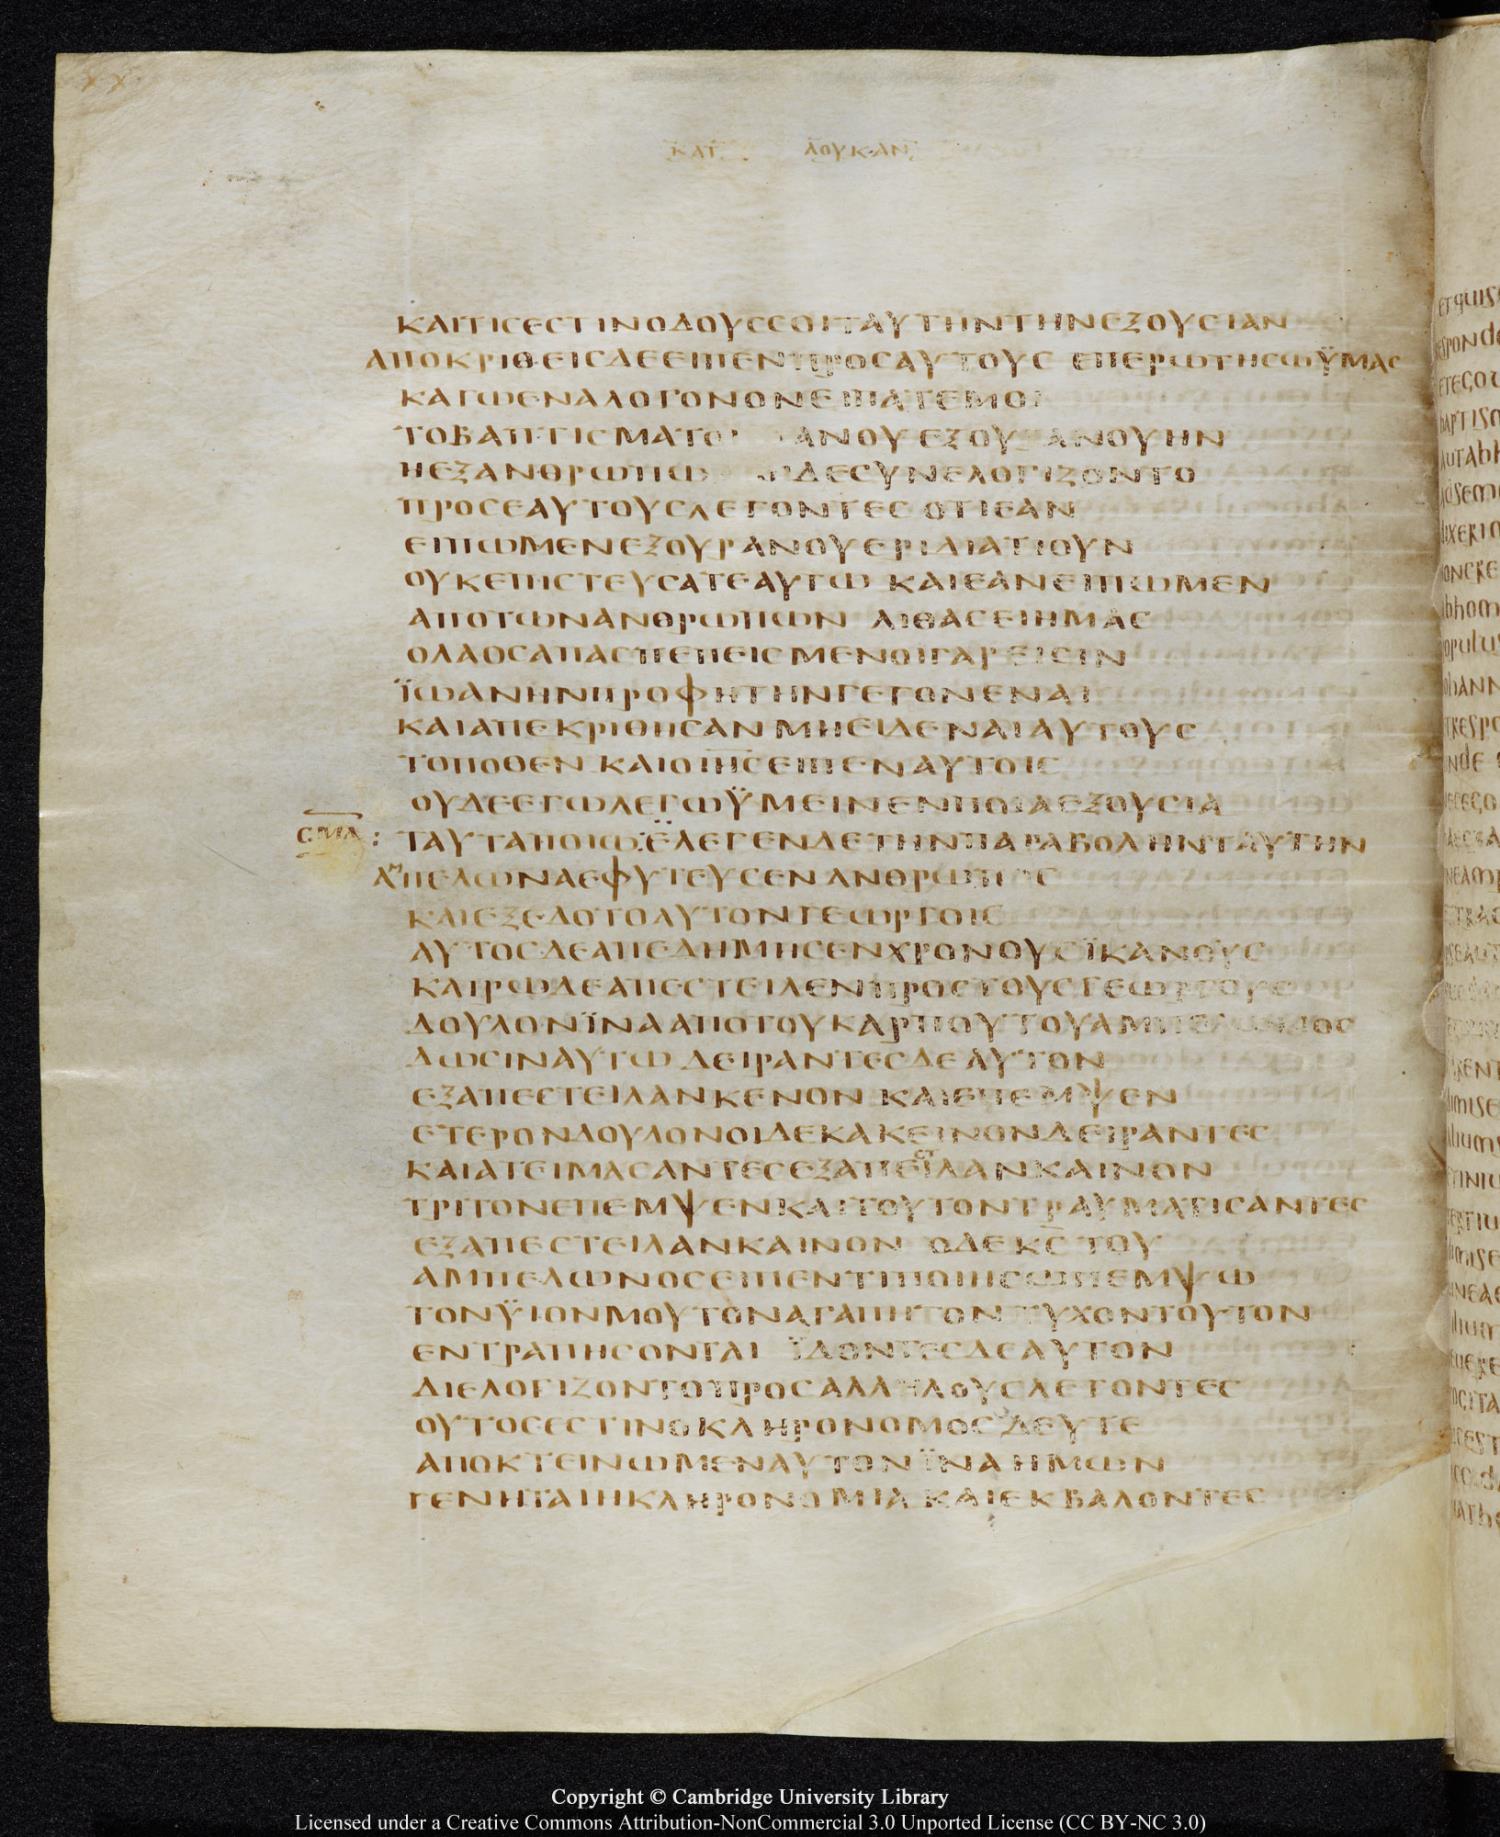 ΚΑΤ ΛΟΥΚΑΝ
ΚΑΙΤΙCΕCΤΙΝΟΔΟΥCCΟΙΤΑΥΤΗΝΤΗΝΕΞΟΥCΙΑΝ
ΑΠΟΚΡΙΘΕΙCΔΕΕΙΠΕΝΠΡΟCΑΥΤΟΥC ΕΠΕΡΩΤΗCΩΫΜΑC
ΚΑΓΩΕΝΑΛΟΓΟΝΟΝΕΙΠΑΤΕΜΟΙ
ΤΟΒΑΠΤΙCΜΑΤΟ ΑΝΟΥ ΕΞΟΥ ΑΝΟΥΗΝ
ΗΕΞΑΝΘΡΩΠΩ ΔΕCΥΝΕΛΟΓΙΖΟΝΤΟ
ΠΡΟCΕΑΥΤΟΥCΛΕΓΟΝΤΕC ΟΤΙΕΑΝ
ΕΙΠΩΜΕΝΕΞΟΥΡΑΝΟΥΕΡΙΔΙΑΤΙΟΥΝ
ΟΥΚΕΠΙCΤΕΥCΑΤΕΑΥΤΩ ΚΑΙΕΑΝΕΙΠΩΜΕΝ
ΑΠΟΤΩΝΑΝΘΡΩΠΩΝ ΛΙΘΑCΕΙΗΜΑC
ΟΛΑΟCΑΠΑCΠΕΠΕΙCΜΕΝΟΙΓΑΡΕΙCΙΝ
ΪΩΑΝΗΝΠΡΟΦΗΤΗΝΓΕΓΟΝΕΝΑΙ
ΚΑΙΑΠΕΚΡΙΘΗCΑΝ ΜΗΕΙΔΕΝΑΙΑΥΤΟΥC
ΤΟΠΟΘΕΝ ΚΑΙΟΙΗCΕΙΠΕΝΑΥΤΟΙC
ΟΥΔΕΕΓΩΛΕΓΩΫΜΕΙΝΕΝΠΟΙΑΕΞΟΥCΙΑ
CΜΑ : ΤΑΥΤΑΠΟΙΩ:ΕΛΕΓΕΝΔΕΤΗΝΠΑΡΑΒΟΛΗΝΤΑΥΤΗΝ
ΑΜΠΕΛΩΝΑΕΦΥΤΕΥCΕΝ ΑΝΘΡΩΠΟC
ΚΑΙΕΞΕΔΟΤΟΑΥΤΟΝΓΕΩΡΓΟΙC
ΑΥΤΟCΔΕΑΠΕΔΗΜΗCΕΝΧΡΟΝΟΥCΪΚΑΝΟΥC
ΚΑΙΡΩΔΕΑΠΕCΤΕΙΛΕΝΠΡΟCΤΟΥCΓΕΩΡΓΟΥC
ΔΟΥΛΟΝΪΝΑΑΠΟΤΟΥΚΑΡΠΟΥΤΟΥΑΜΠΕΛΩΝΟC
ΔΩCΙΝΑΥΤΩ ΔΕΙΡΑΝΤΕCΔΕΑΥΤΟΝ
ΕΞΑΠΕCΤΕΙΛΑΝΚΕΝΟΝ ΚΑΙΕΠΕΜΨΕΝ
ΕΤΕΡΟΝΔΟΥΛΟΝΟΙΔΕΚΑΚΕΙΝΟΝΔΕΙΡΑΝΤΕC
ΚΑΙΑΤΕΙΜΑCΑΝΤΕCΕΞΑΠΕCΤΙΛΑΝΚΑΙΝΟΝ
ΤΡΙΤΟΝΕΠΕΜΨΕΝΚΑΙΤΟΥΤΟΝΤΡΑΥΜΑΤΙCΑΝΤΕC
ΕΞΑΠΕCΤΕΙΛΑΝΚΑΙΝΟΝ ΟΔΕΚC ΤΟΥ
ΑΜΠΕΛΩΝΟCΕΙΠΕΝΤΙΠΟΙΗCΩΠΕΜΨΩ
ΤΟΝΫΙΟΝΜΟΥΤΟΝΑΓΑΠΗΤΟΝ ΤΥΧΟΝΤΟΥΤΟΝ
ΕΝΤΡΑΠΗCΟΝΤΑΙ ΪΔΟΝΤΕCΔΕΑΥΤΟΝ
ΔΙΕΛΟΓΙΖΟΝΤΟΠΡΟCΑΛΛΗΛΟΥCΛΕΓΟΝΤΕC
ΟΥΤΟCΕCΤΙΝΟΚΛΗΡΟΝΟΜΟCΔΕΥΤΕ
ΑΠΟΚΤΕΙΝΩΜΕΝΑΥΤΟΝΪΝΑΗΜΩΝ
ΓΕΝΗΤΑΙΗΚΛΗΡΟΝΟΜΙΑ ΚΑΙΕΚΒΑΛΟΝΤΕC
Copyright © Cambridge University Library
Licensed under a Creative Commons Attribution-NonCommercial 3.0 Unported License (CC BY-NC 3.0)